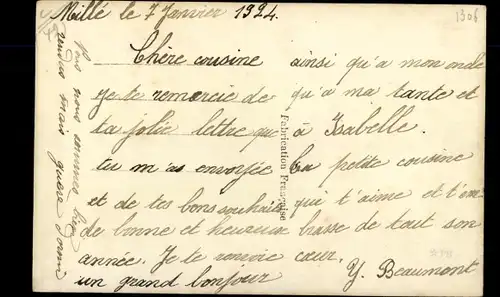 Millé le 7 Janvier 1924.
1306
Chère cousine
Je te remercie de
ta jolie lettre que
tu m'as envoyée
et de tes bons souhaits
de bonne et heureuse
année. Je te renvoie
un grand bonjour
ainsi qu'a mon oncle
qu'a ma tante et
à Isabelle.
Ta petite cousine
qui t'aime et t'em-
brasse de tout son
cœur.
Y. Beaumont
Fabrication Française
Vous nous sommes bien
rendus mais guère dormi